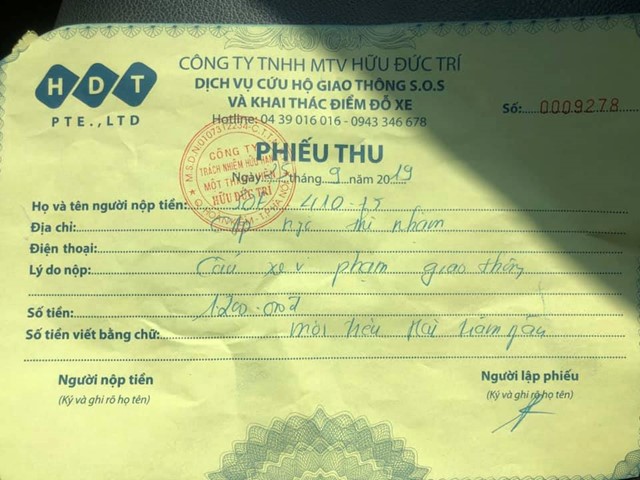 HDT
PTE., LTD
CÔNG TY TNHH MTV HỮU ĐỨC TRÍ
DỊCH VỤ CỨU HỘ GIAO THÔNG S.O.S
VÀ KHAI THÁC ĐIỂM ĐỖ XE
Hotline: 04 39 016 016 - 0943 346 678
Số: 0009278
PHIẾU THU
Ngày 25 tháng 9 năm 2019
M.S.D.N:0107312234-C.T.T.N
CÔNG TY
TRÁCH NHIỆM HỮU HẠN
MỘT THÀNH VIÊN
HỮU ĐỨC TRÍ
Họ và tên người nộp tiền: 410.15
Địa chỉ:
Điện thoại:
Lý do nộp: Cẩu xe vi phạm giao thông
Số tiền: 1.200.000đ
Số tiền viết bằng chữ: một triệu hai trăm
Người nộp tiền
(Ký và ghi rõ họ tên)
Người lập phiếu
(Ký và ghi rõ họ tên)